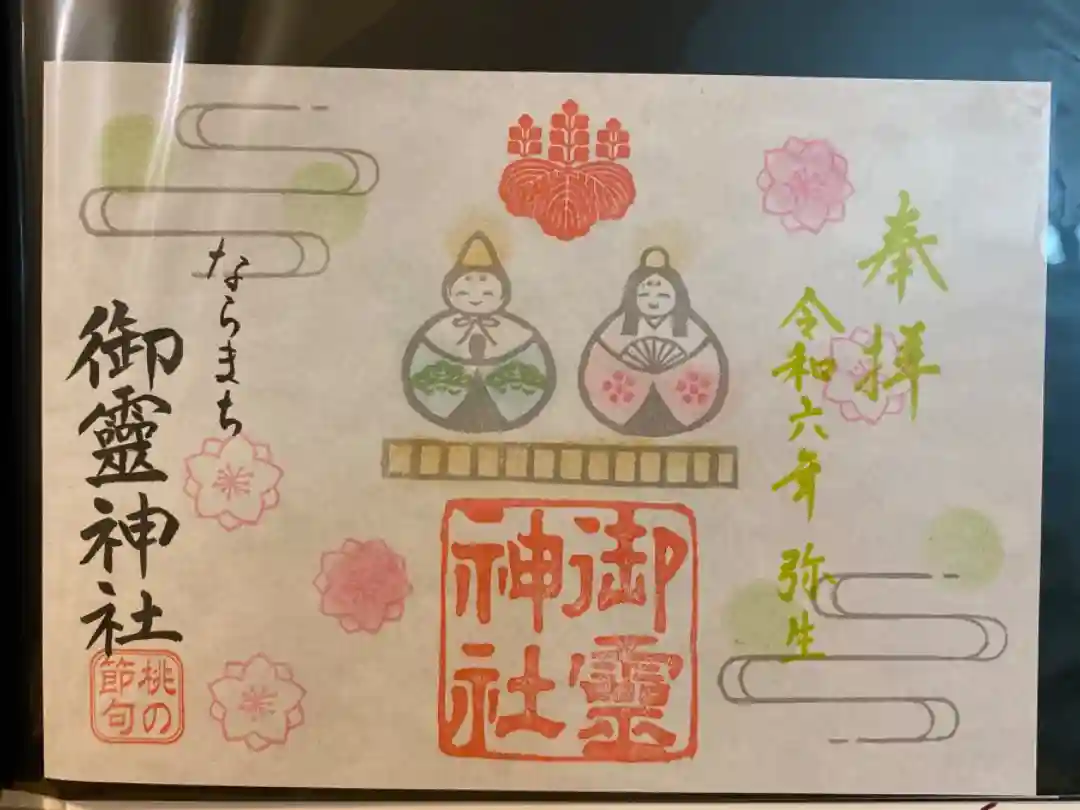 奉拝
令和六年 弥生
御靈神社
ならまち
御靈神社
桃の節句